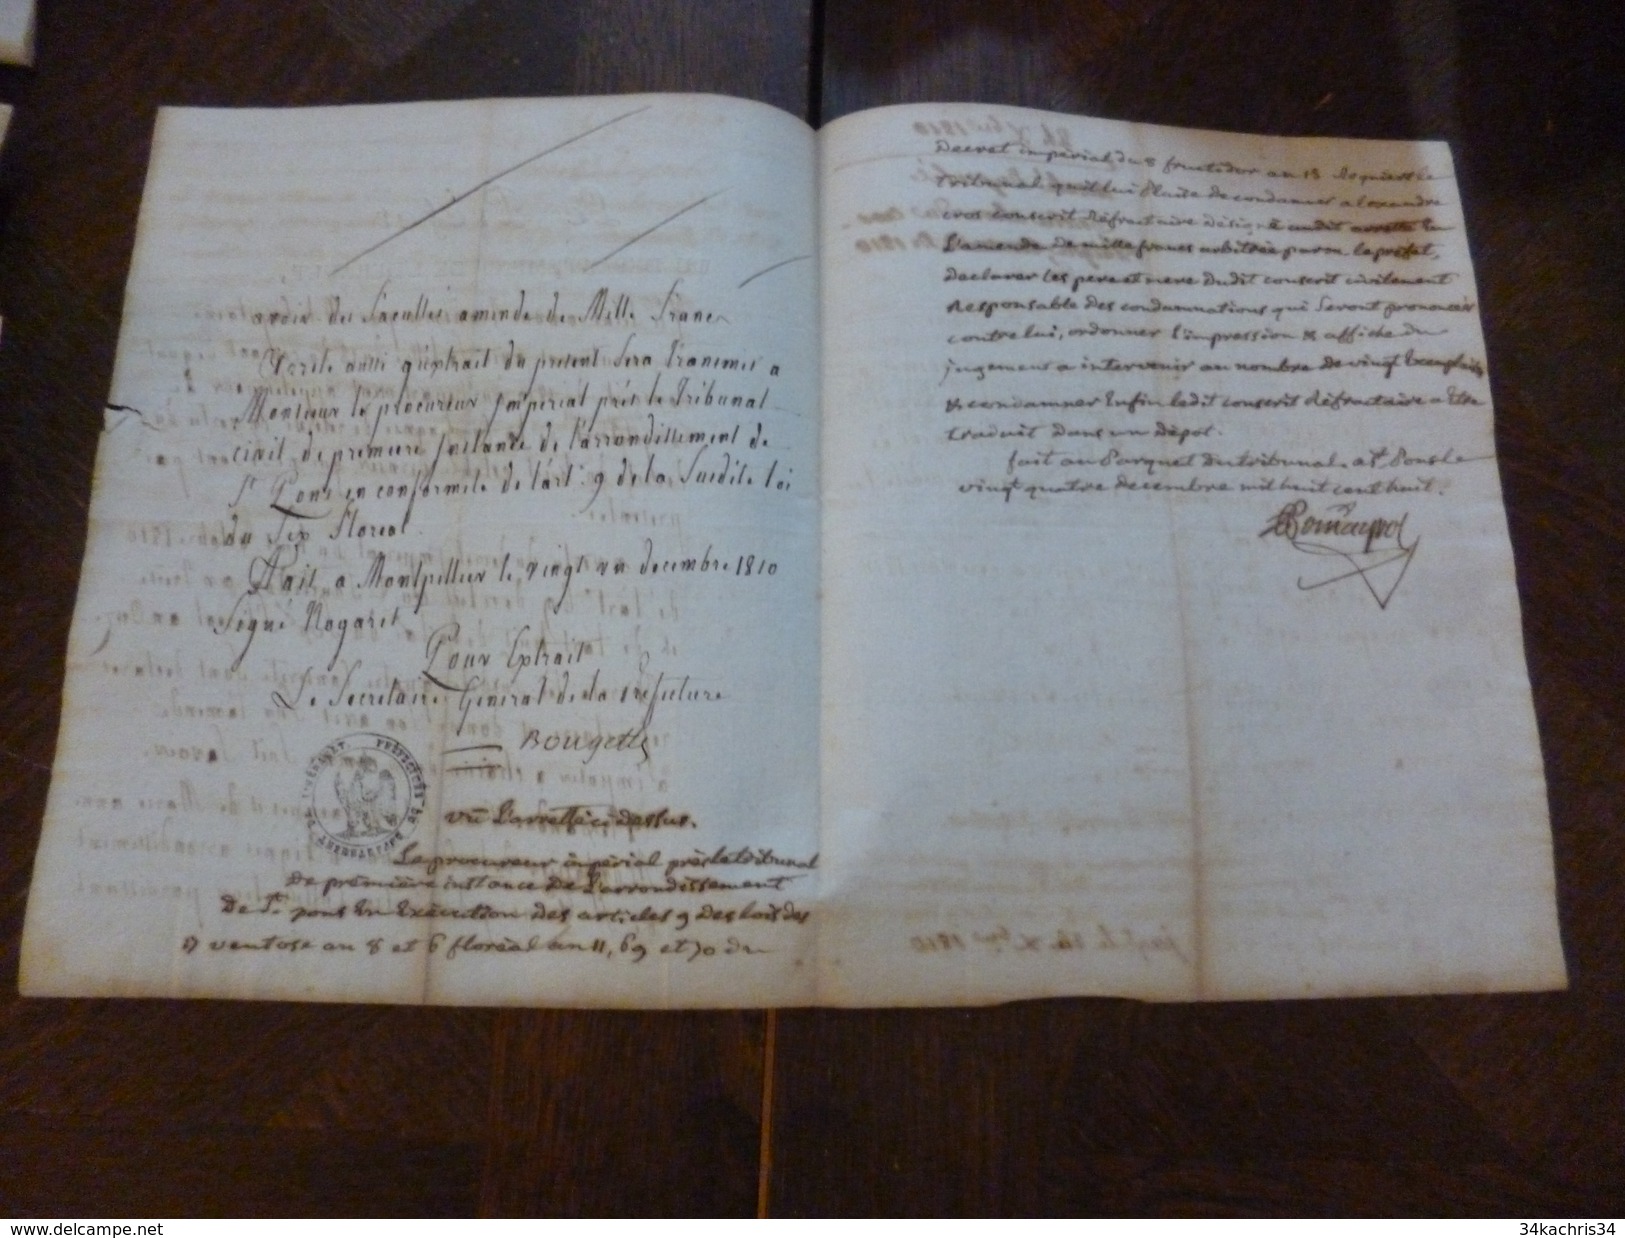 avoir des facultés amende de Mille francs
Arrete aussi qu'extrait du present sera transmis a
Monsieur le procureur imperial près le Tribunal
civil de premiere instance de l'arrondissement de
St Pons en conformité de l'art: 9 de la Susdite loi
du Six floreal.
Fait a Montpellier le vingt un decembre 1810
Signé Nogaret
Pour Extrait
Le Secretaire General de la prefecture
Bougette
PRÉFECTURE DU DÉPARTEMENT DE L'HÉRAULT
vû L'arretté ci dessus.
Le procureur impérial près le tribunal
De première instance De L'arrondissement
De St pons En Exécution Des articles 9 Des lois des
17 ventose an 8 et 6 floréal an 11, 69 et 70 du
Decret impérial du 8 fructidor an 13 Requiert le
tribunal qu'il lui Plaise de condamner alexandre
cros conscrit Réfractaire désigné audit arretté En
L'amende De mille francs arbitrée par m le préfet,
Déclarer les pere et mere Dudit conscrit civilement
Responsable Des condamnations qui Seront prononcées
contre lui, ordonner l'impression & affiche du
jugement a intervenir au nombre De vingt Exemplaires
& condamner Enfin Ledit conscrit Réfractaire a Etre
traduit Dans un Dépot.
fait au Parquet du tribunal a St Pons le
vingt quatre decembre mil huit cent huit.
www.delcampe.net
34kachris34